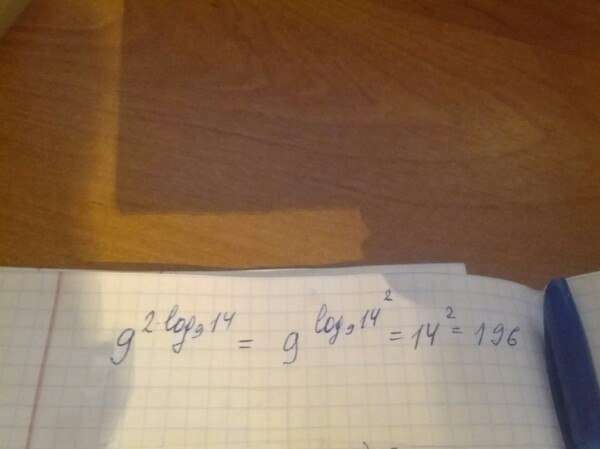 9^{2·log_9 14} = 9^{log_9 14^2} = 14^2 = 196